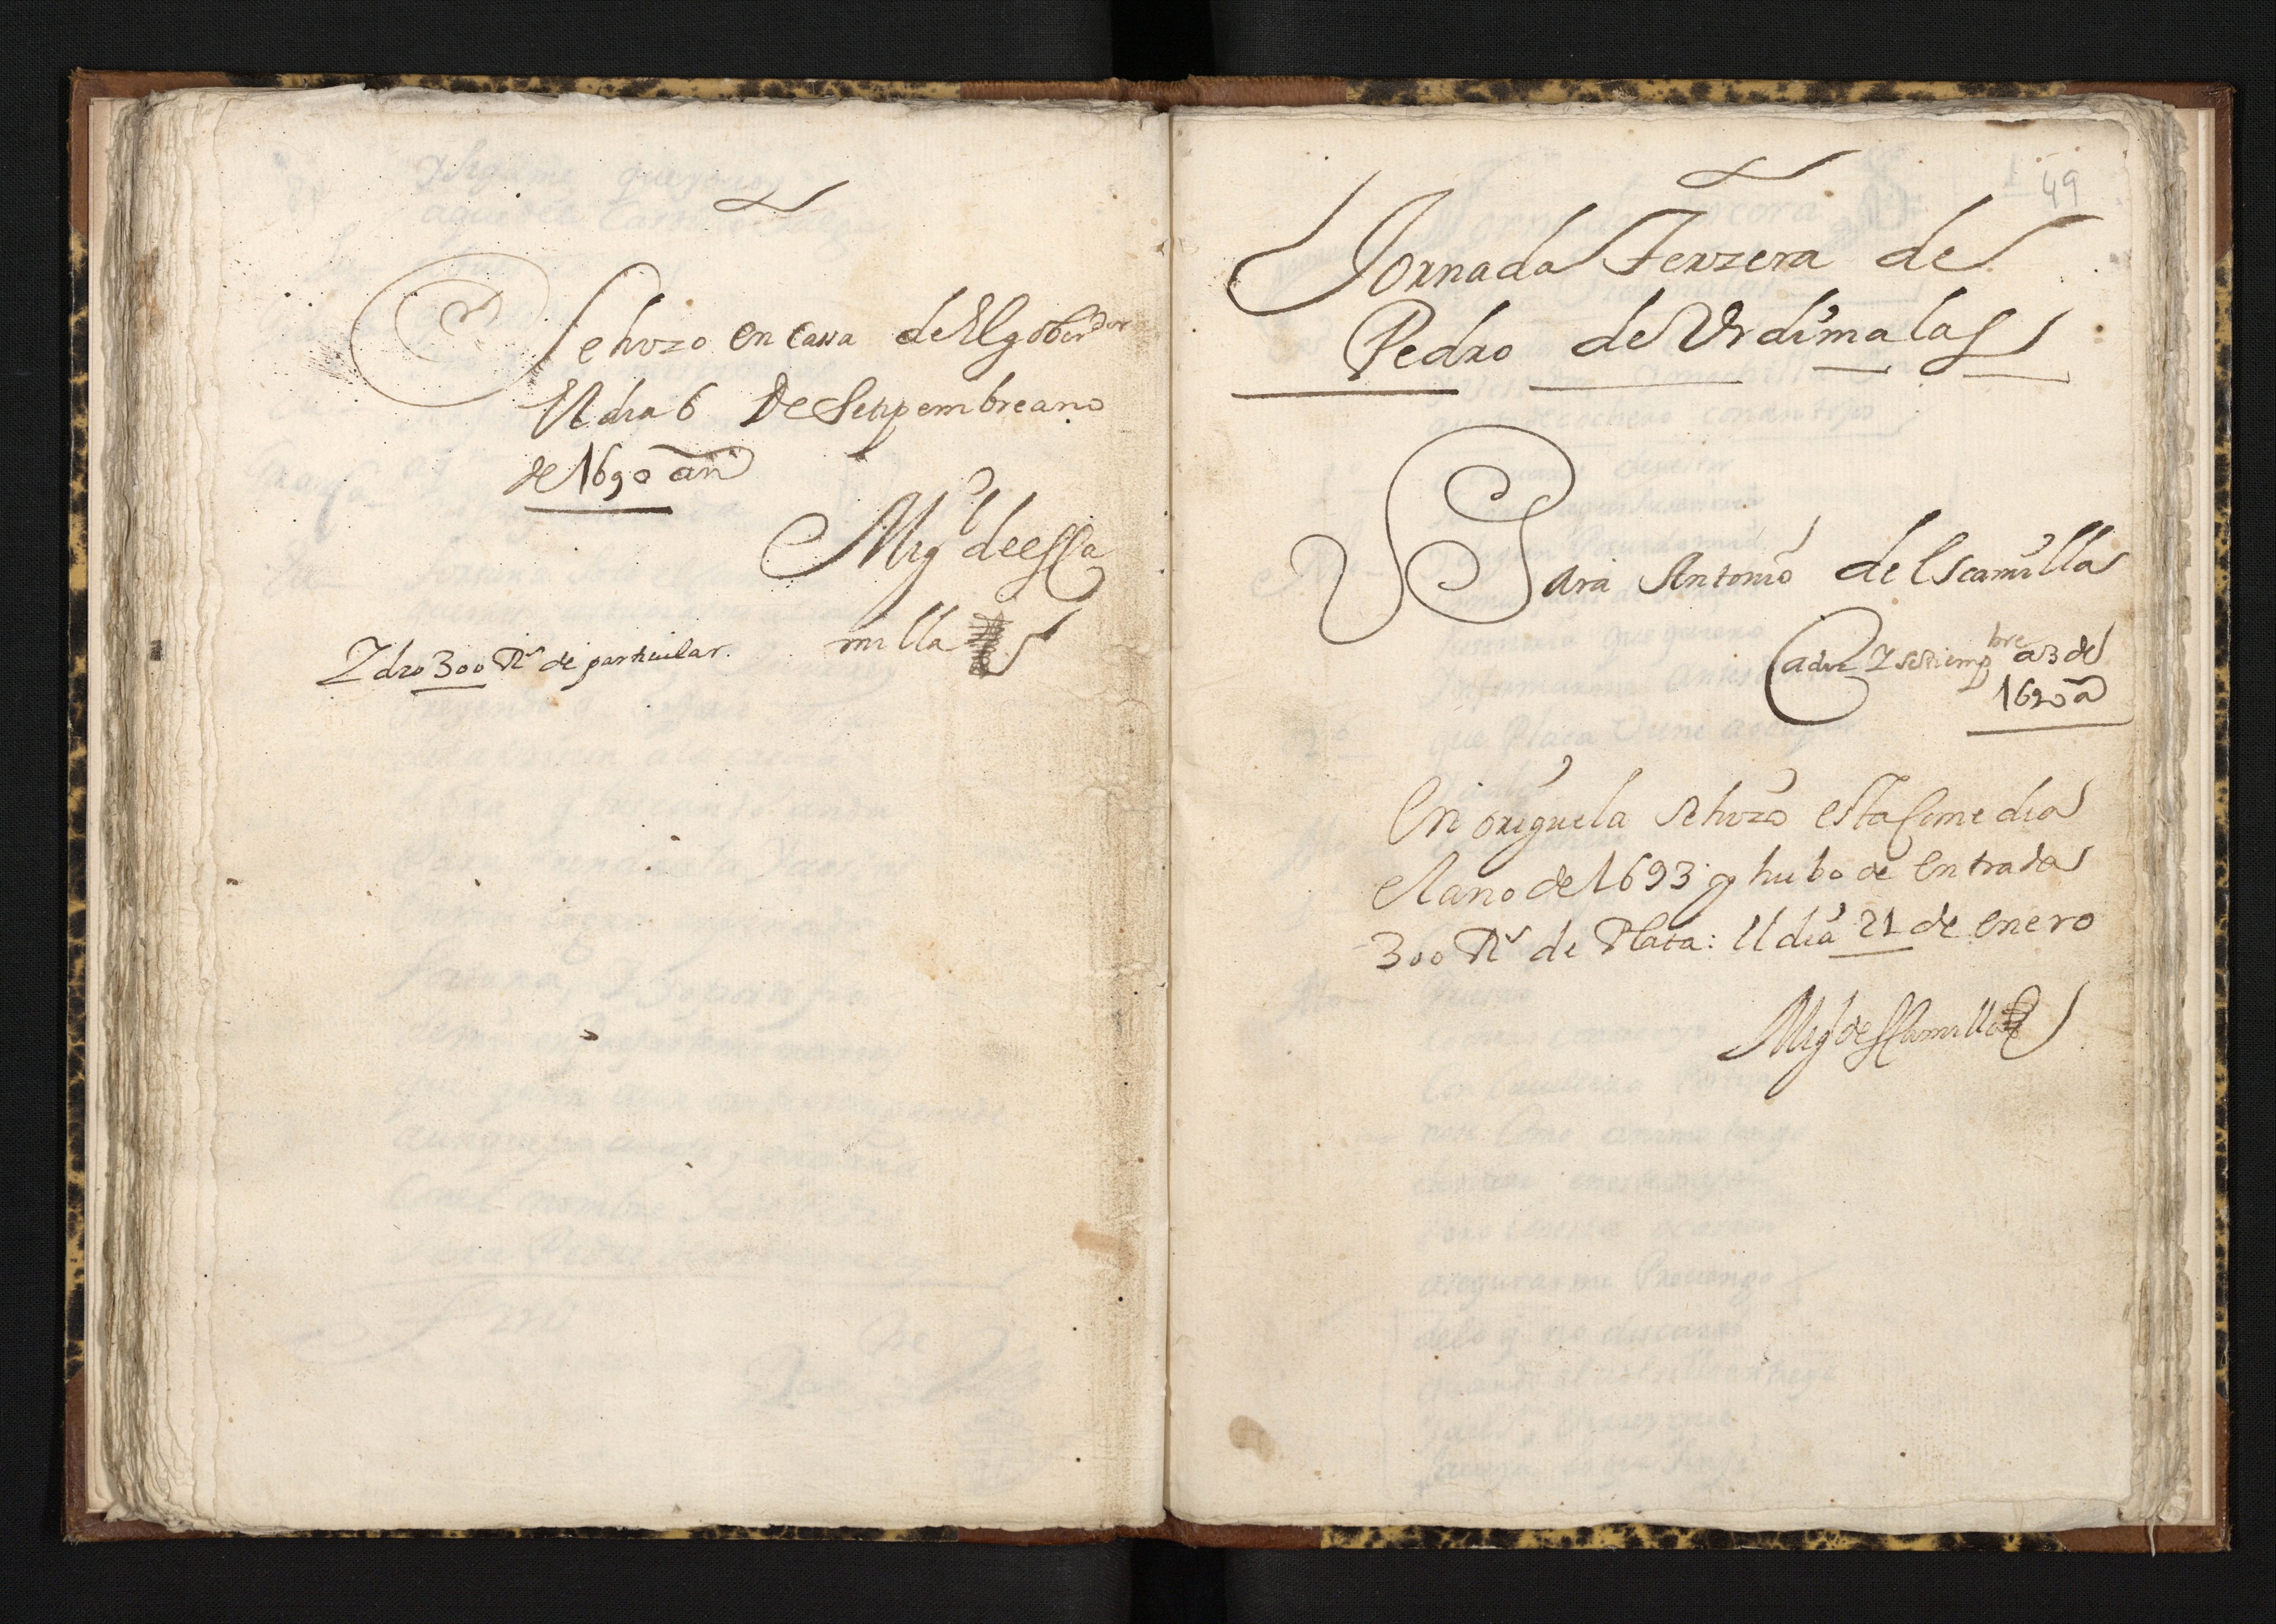 Se hizo en casa de El gober.dor
El dia 6 De Setipembre ano
de 1690 añ
Migl de esca
milla
I dio 300 Rs de particular.
49
Jornada Terzera de
Pedro de Urdimalas
Para Antonio de Escamilla
Cadiz I setiemp bre a 3 de
1690 a
En origuela se hizo esta Comedia
el ano de 1693 y hubo de entrada
300 Rs de Plata: El dia 21 de enero
Migl de escamilla